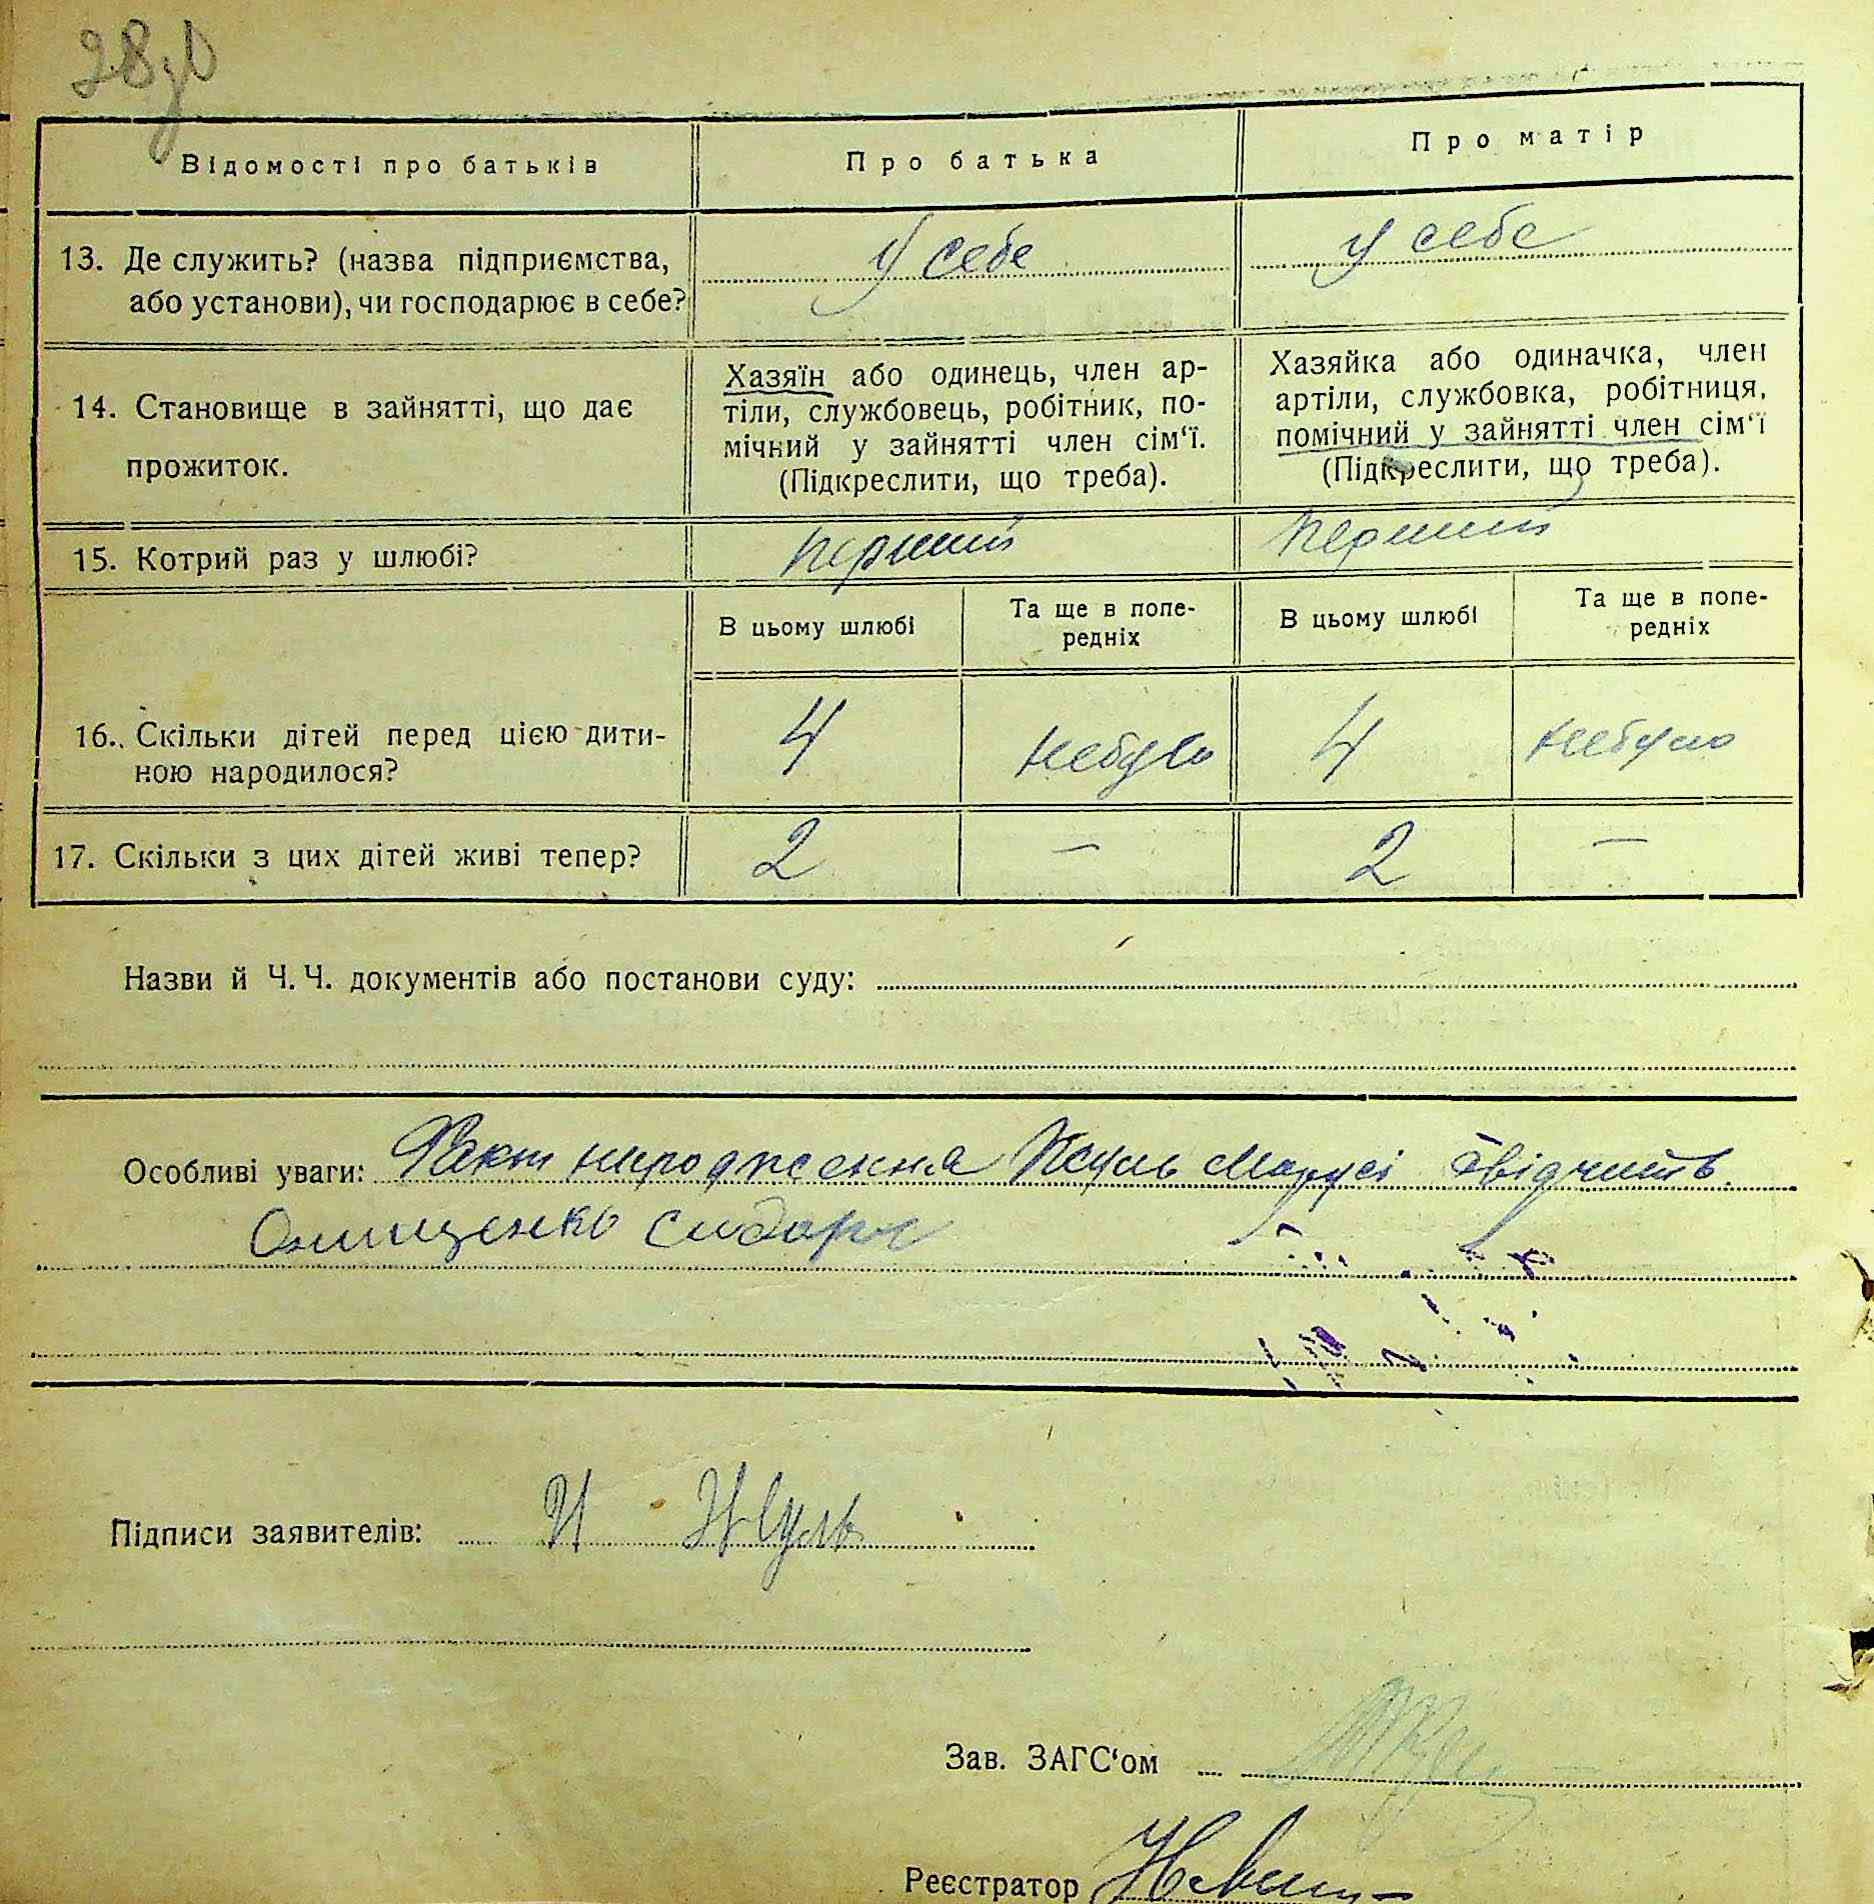 28зв
Відомості про батьків
Про батька
Про матір
13. Де служить? (назва підприємства,
або установи), чи господарює в себе?
У себе
У себе
14. Становище в зайнятті, що дає
прожиток.
Хазяїн або одинець, член ар-
тіли, службовець, робітник, по-
мічний у зайнятті член сім‘ї.
(Підкреслити, що треба).
Хазяйка або одиначка, член
артіли, службовка, робітниця,
помічний у зайнятті член сім‘ї
(Підкреслити, що треба).
15. Котрий раз у шлюбі?
перший
перший
В цьому шлюбі
Та ще в попе-
редніх
В цьому шлюбі
Та ще в попе-
редніх
16. Скільки дітей перед цією дити-
ною народилося?
4
небуло
4
небуло
17. Скільки з цих дітей живі тепер?
2
—
2
—
Назви й Ч. Ч. документів або постанови суду:
Особливі уваги: Факт народження Жуль Марусі свідчить
Онищенко Сидора
Підписи заявителів: И Жуль
Зав. ЗАГС‘ом
Реєстратор